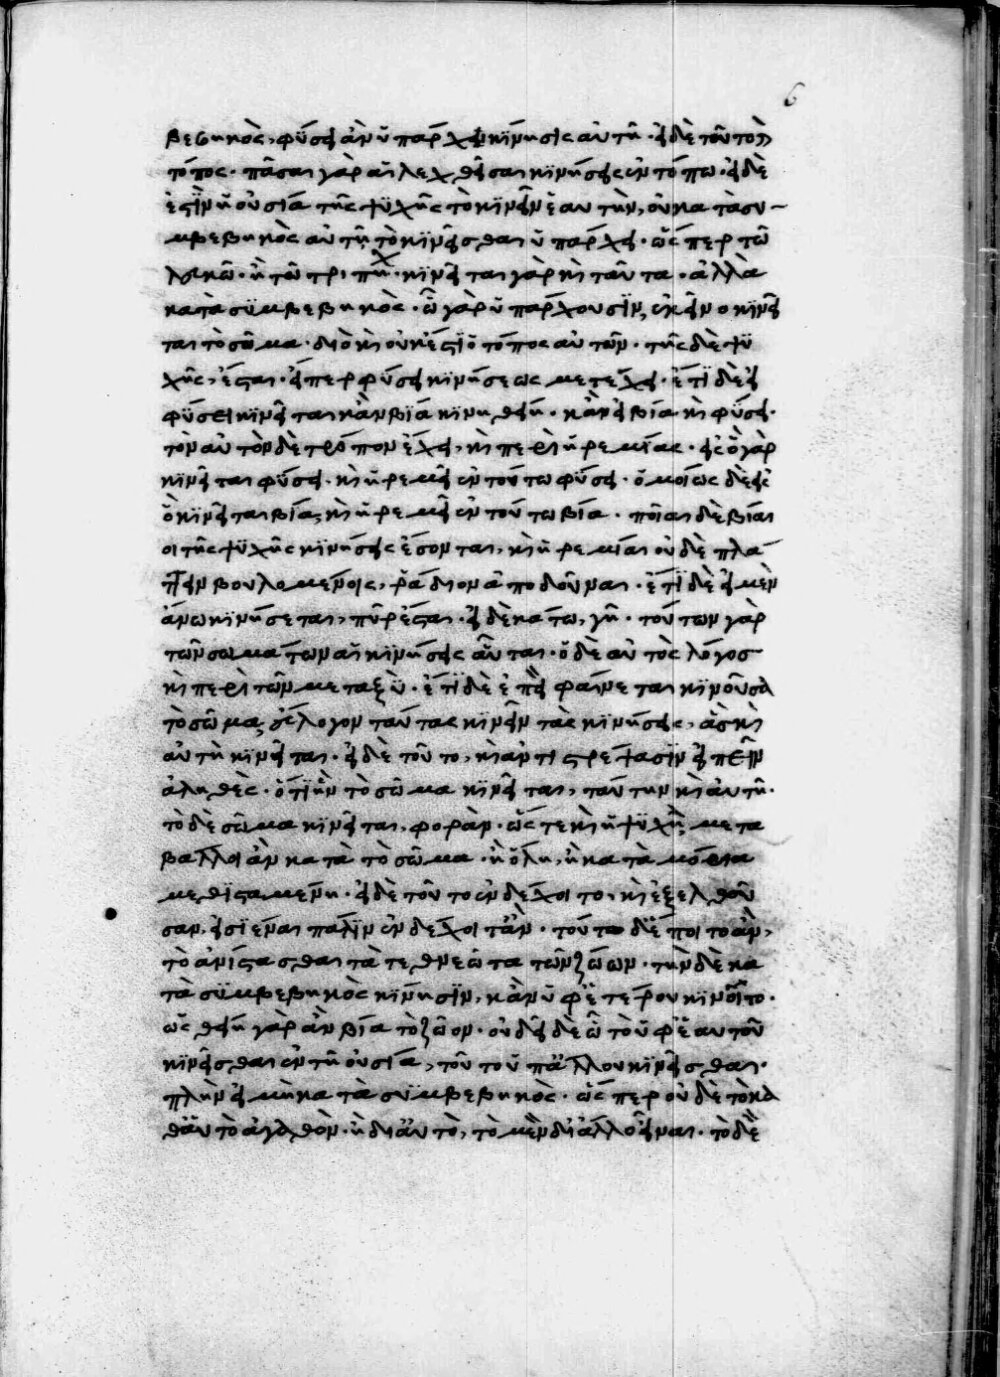 6
βεβηκὸς, φύσει ἂν ὑπάρχοι κίνησις αὐτῆ · εἰ δὲ τοῦτο κ̀
τόπος · πᾶσαι γὰρ αἱ λεχθεῖσαι κινήσεις ἐν τόπω · εἰ δὲ
ἐστὶν ἡ οὐσία τῆς ψυχῆς τὸ κινεῖν ἑαυτὴν, οὐ κατὰ συ-
μβεβηκὸς αὐτῆ τὸ κινεῖσθαι ὑπάρχει · ὥσπερ τῶ
λευκῶ · ἢ τῶ τριπήχει · κινεῖται γὰρ κὶ ταῦτα · ἀλλὰ
κατὰ συμβεβηκὸς · ὧ γὰρ ὑπάρχουσιν, ἐκεῖνο κινεῖ
ται τὸ σῶμα · διὸ κὶ οὐκ ἔστι τόπος αὐτῶν · τῆς δὲ ψυ
χῆς, ἔσται · εἴπερ φύσει κινήσεως μετέχει · ἔτι δὲ εἰ
φύσει κινεῖται κἂν βία κινηθείη · κἂν εἰ βία κὶ φύσει ·
τὸν αὐτὸν δὲ τρόπον ἔχει, κὶ περὶ ἠρεμίας · εἰς ὃ γὰρ
κινεῖται φύσει · κὶ ἠρεμεῖ ἐν τούτω φύσει · ὁμοίως δὲ εἰς
ὃ κινεῖται βία, κὶ ἠρεμεῖ ἐν τούτω βία · ποῖαι δὲ βίαι
οι τῆς ψυχῆς κινήσεις ἔσονται, κὶ ἠρεμίαι οὐδὲ πλά
ττειν βουλομένοις, ῥάδιον ἀποδοῦναι · ἔτι δὲ εἰ μὲν
ἄνω κινήσεται, πῦρ ἔσται · εἰ δὲ κάτω, γῆ · τούτων γὰρ
τῶν σωμάτων αἱ κινήσεις αὗται · ὁ δὲ αὐτὸς λόγος
κὶ περὶ τῶν μεταξὺ · ἔτι δὲ ἐπεὶ φαίνεται κινοῦσα
τὸ σῶμα, εὔλογον ταύτας κινεῖν τὰς κινήσεις, ἃς κὶ
αὐτὴ κινεῖται · εἰ δὲ τοῦτο, κὶ ἀντιστρέψασιν εἰπεῖν
ἀληθὲς · ὅτι ἣν τὸ σῶμα κινεῖται, ταύτην κὶ αὐτή ·
τὸ δὲ σῶμα κινεῖται, φορὰν · ὥστε κὶ ἡ ψυχὴ μετα
βάλλοι ἂν κατὰ τὸ σῶμα · ἢ ὅλη, ἢ κατὰ μόρια
μεθισταμένη · εἰ δὲ τοῦτο ἐνδέχοιτο, κὶ ἐξελθοῦ
σαν, εἰσιέναι πάλιν ἐνδέχοιτ' ἂν · τούτω δ' ἕποιτο ἂν,
τὸ ἀνίστασθαι τὰ τεθνεῶτα τῶν ζώων · τὴν δὲ κα
τὰ συμβεβηκὸς κίνησιν, κἂν ὑφ' ἑτέρου κινοῖτο ·
ὠσθείη γὰρ ἂν βία τὸ ζῶον · οὐ δεῖ δὲ ὧ τὸ ὑφ' ἑαυτοῦ
κινεῖσθαι ἐν τῆ οὐσία, τοῦτο ὑπ' ἄλλου κινεῖσθαι ·
πλὴν εἰ μὴ κατὰ συμβεβηκὸς · ὥσπερ οὐδὲ τὸ κα
θ' αὑτὸ ἀγαθὸν · ἢ δι' αὑτὸ, τὸ μὲν δι' ἄλλο εἶναι · τὸ δὲ